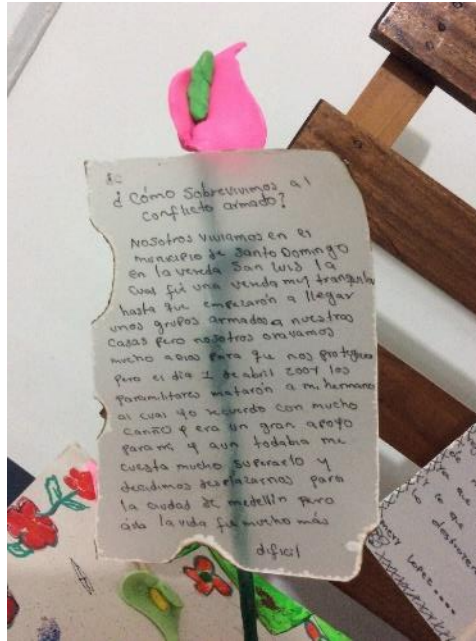 ¿Cómo Sobrevivimos al
conflicto armado?
Nosotros viviamos en el
municipio de Santo Domingo
en la vereda San Luis la
cual fué una vereda muy tranquila
hasta que empezarón a llegar
unos grupos armados a nuestras
casas pero nosotros oravamos
mucho a Dios para que nos protegiera
pero el día 1 de abril 2001 los
paramilitares matarón a mi hermano
al cual yo recuerdo con mucho
cariño y era un gran apoyo
para mi y aun todabia me
cuesta mucho superarlo y
decidimos desplazarnos para
la ciudad de medellín pero
acá la vida fué mucho más
dificil
lo que
Lopez....